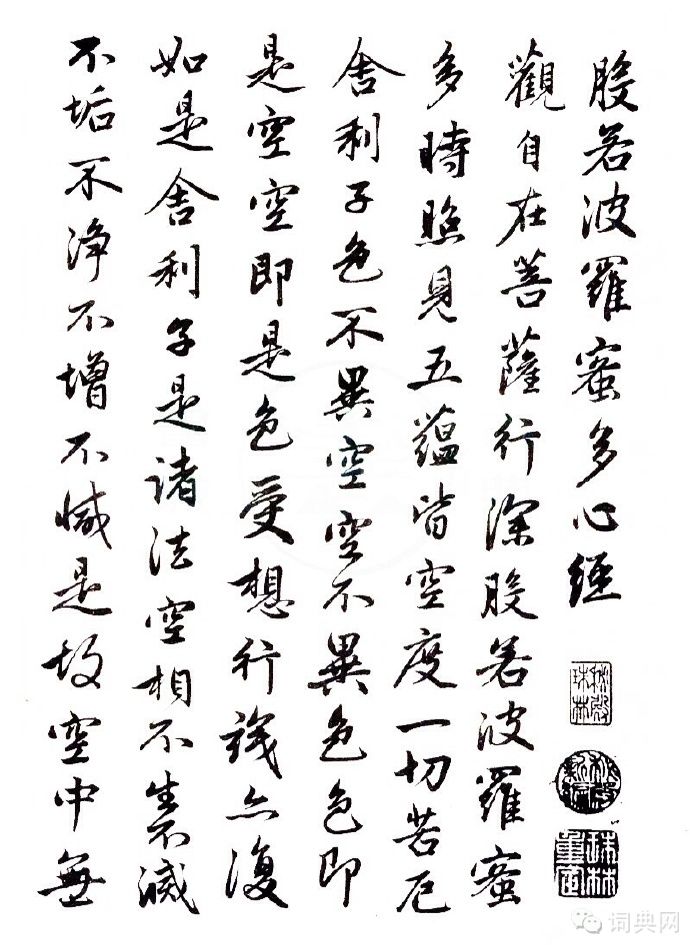 般若波羅蜜多心經
觀自在菩薩行深般若波羅蜜
多時照見五蘊皆空度一切苦厄
舍利子色不異空空不異色色即
是空空即是色受想行識亦復
如是舍利子是諸法空相不生不滅
不垢不淨不增不減是故空中無
秘殿珠林
秘殿新編
珠林重定
词典网